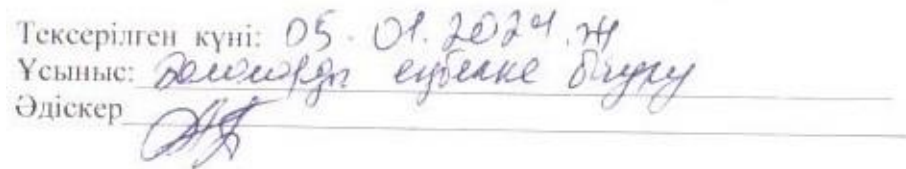 Тексерілген күні: 05.01.2024.ж
Ұсыныс: Балаларды еңбекке баулу
Әдіскер